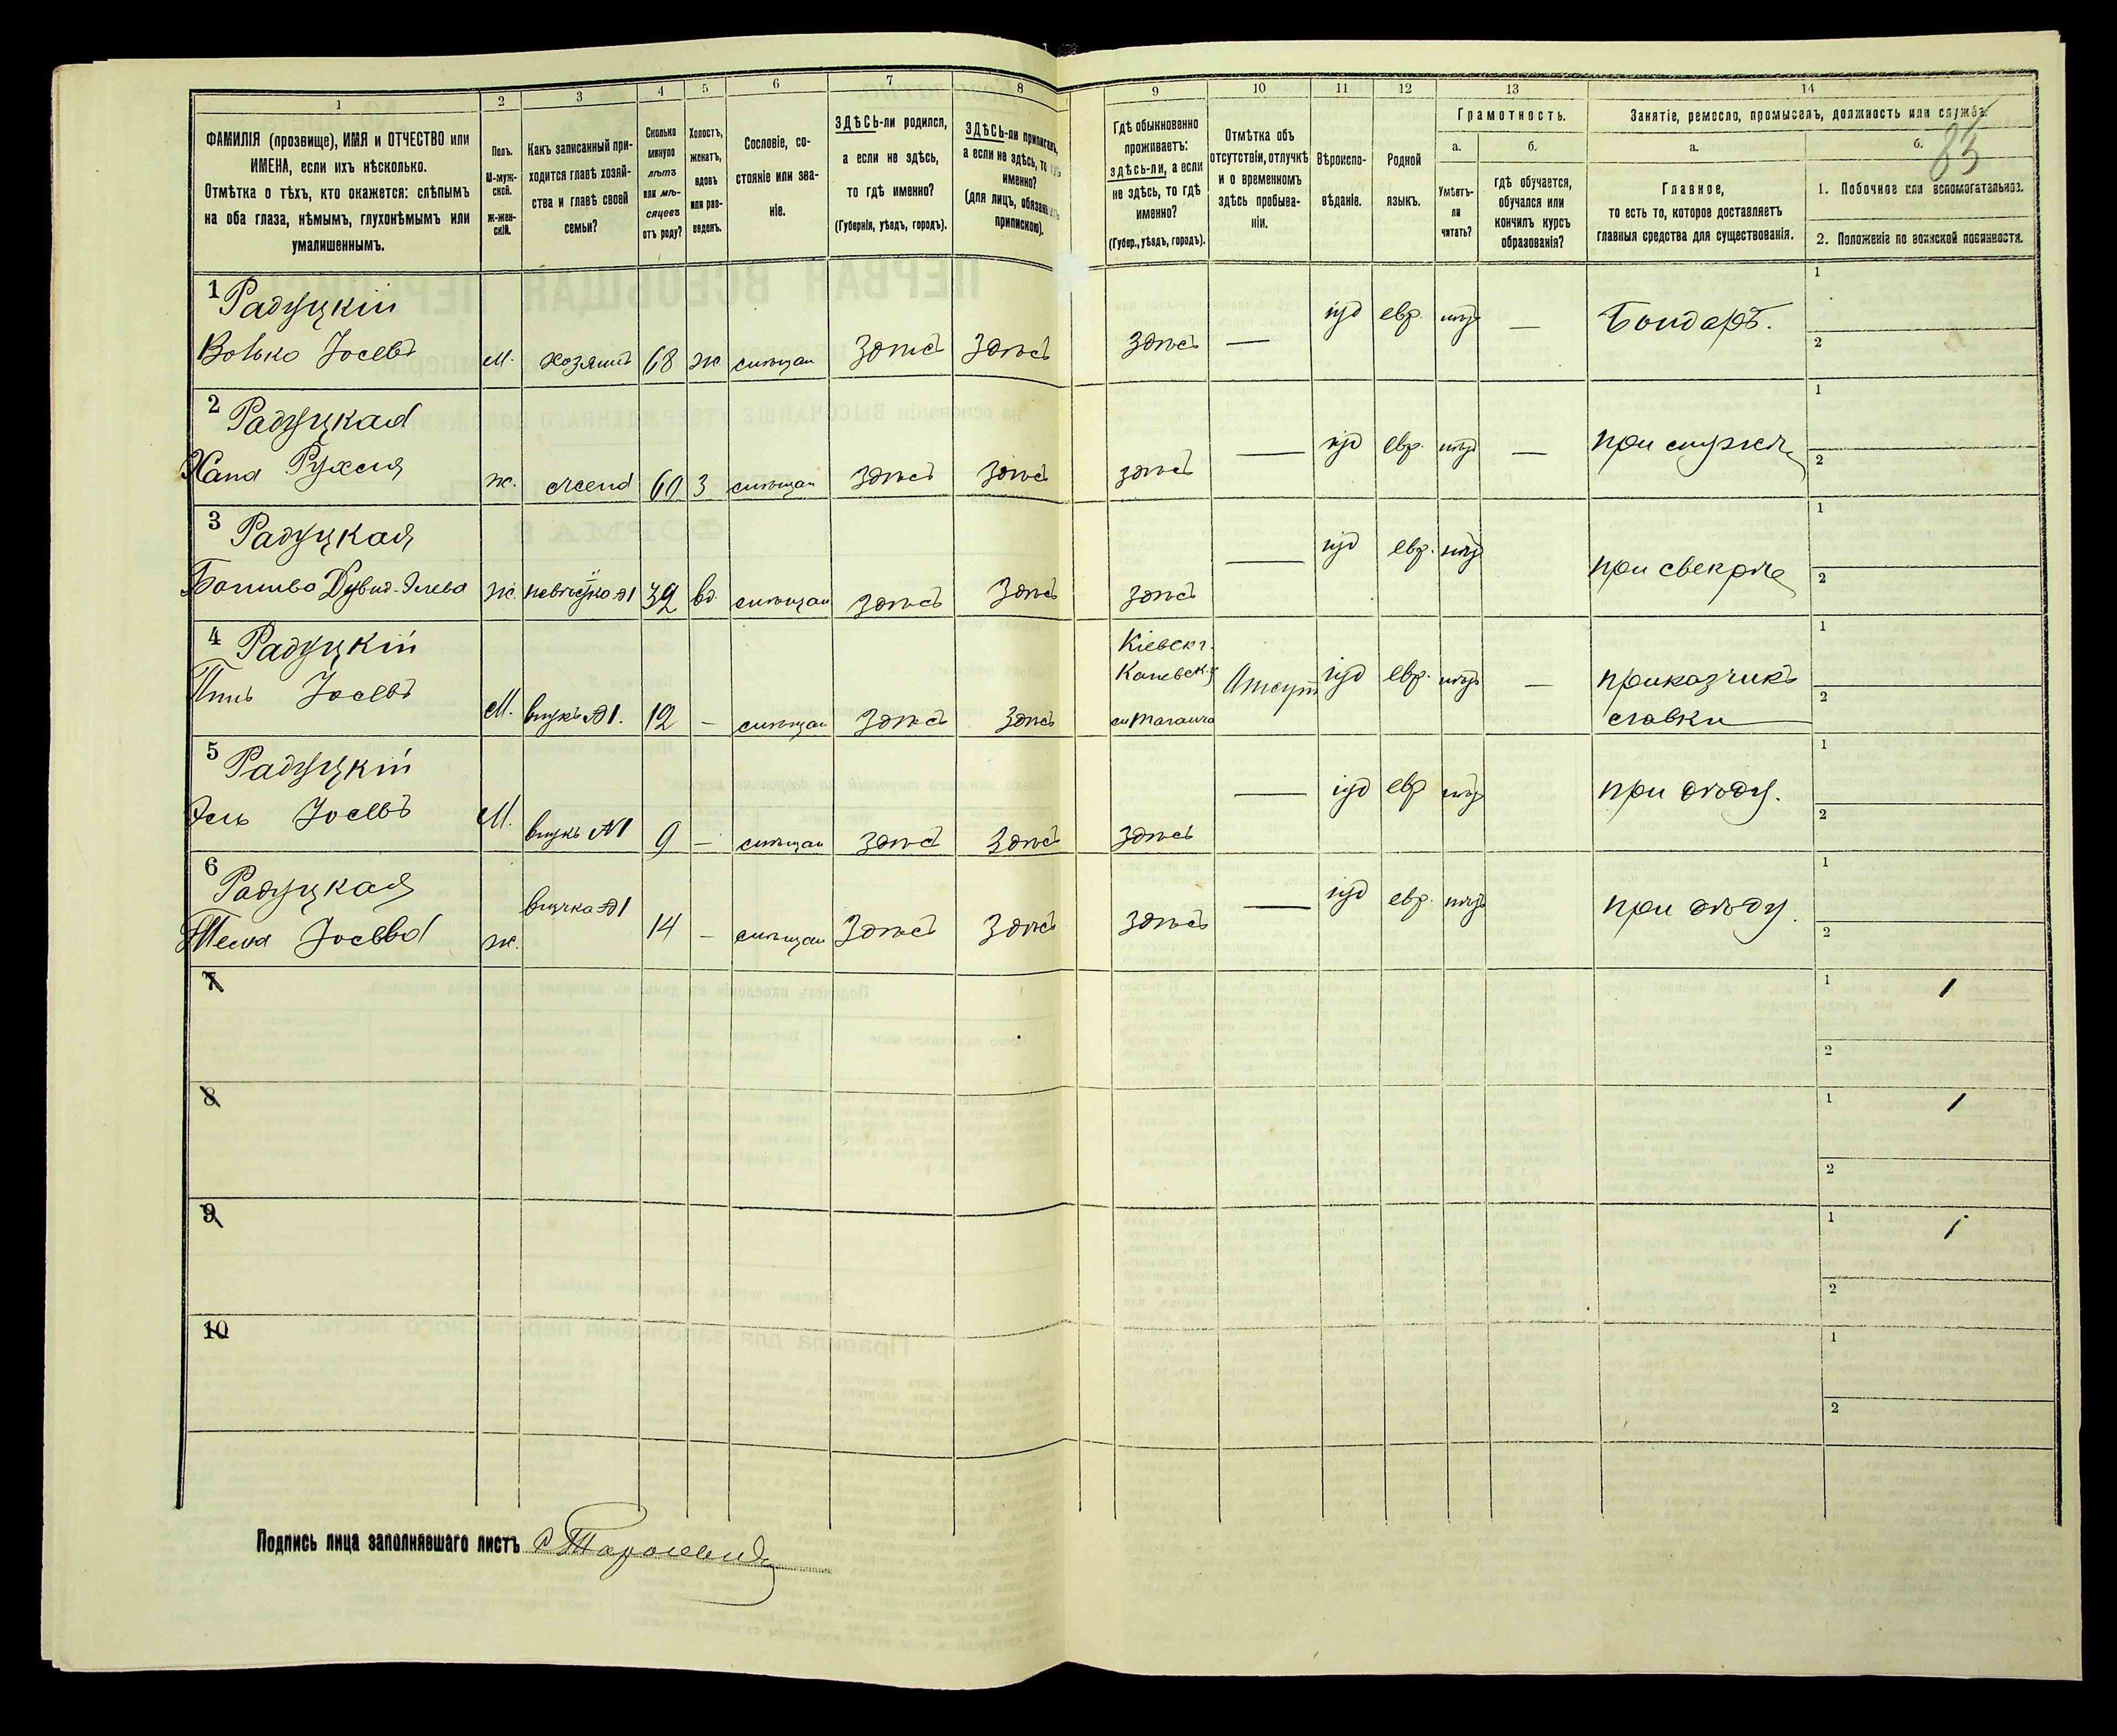 83
1 2 3 4 5 6 7 8 9 10 11 12 13 14
ФАМИЛІЯ (прозвище), ИМЯ и ОТЧЕСТВО или
ИМЕНА, если ихъ нѣсколько.
Отмѣтка о тѣхъ, кто окажется: слѣпымъ
на оба глаза, нѣмымъ, глухонѣмымъ или
умалишеннымъ.
Полъ.
М-муж-
ской.
ж-жен-
скій.
Какъ записанный при-
ходится главѣ хозяй-
ства и главѣ своей
семьи?
Сколько
минуло
лѣтъ
или мѣ-
сяцевъ
отъ роду?
Холостъ,
женатъ,
вдовъ
или раз-
веденъ.
Сословіе, со-
стояніе или зва-
ніе.
ЗДѢСЬ-ли родился,
а если не здѣсь,
то гдѣ именно?
(Губернія, уѣздъ, городъ).
ЗДѢСЬ-ли приписанъ,
а если не здѣсь, то гдѣ
именно?
(для лицъ, обязанныхъ
припискою).
Гдѣ обыкновенно
проживаетъ:
здѣсь-ли, а если
не здѣсь, то гдѣ
именно?
(Губер., уѣздъ, городъ).
Отмѣтка объ
отсутствіи, отлучкѣ
и о временномъ
здѣсь пребыва-
ніи.
Вѣроиспо-
вѣданіе.
Родной
языкъ.
Грамотность.
а.
Умѣетъ-
ли
читать?
б.
гдѣ обучается,
обучался или
кончилъ курсъ
образованія?
Занятіе, ремесло, промыселъ, должность или служба.
а.
Главное,
то есть то, которое доставляетъ
главныя средства для существованія.
б.
1. Побочное или вспомогательное.
2. Положеніе по воинской повинности.
1 Радуцкій
Волько Іосевъ м. хозяинъ 68 ж мѣщан здѣсь здѣсь здѣсь — іуд евр. — Бондарь.
1
2
2 Радуцкая
Хана Рухля ж. жена 60 з мѣщан здѣсь здѣсь здѣсь — іуд евр. — при мужѣ
1
2
3 Радуцкая
ж. невѣстка №1 39 вд. мѣщан здѣсь здѣсь здѣсь — іуд евр. при свекрѣ
1
2
4 Радуцкій
Іосевъ М. внукъ №1. 12 — мѣщан здѣсь здѣсь
Кіевск г.
Каневск. у
м Таганча
Отсут іуд евр. —
приказчикъ
лавки
1
2
5 Радуцкій
Іосевъ М. внукъ №1 9 — мѣщан здѣсь здѣсь здѣсь — іуд евр при дѣду.
1
2
6 Радуцкая
Іосевва ж. внучка №1 14 — мѣщан здѣсь здѣсь здѣсь — іуд евр. при дѣду.
1
2
7
1
2
8
1
2
9
1
2
10
1
2
Подпись лица заполнявшаго листъ